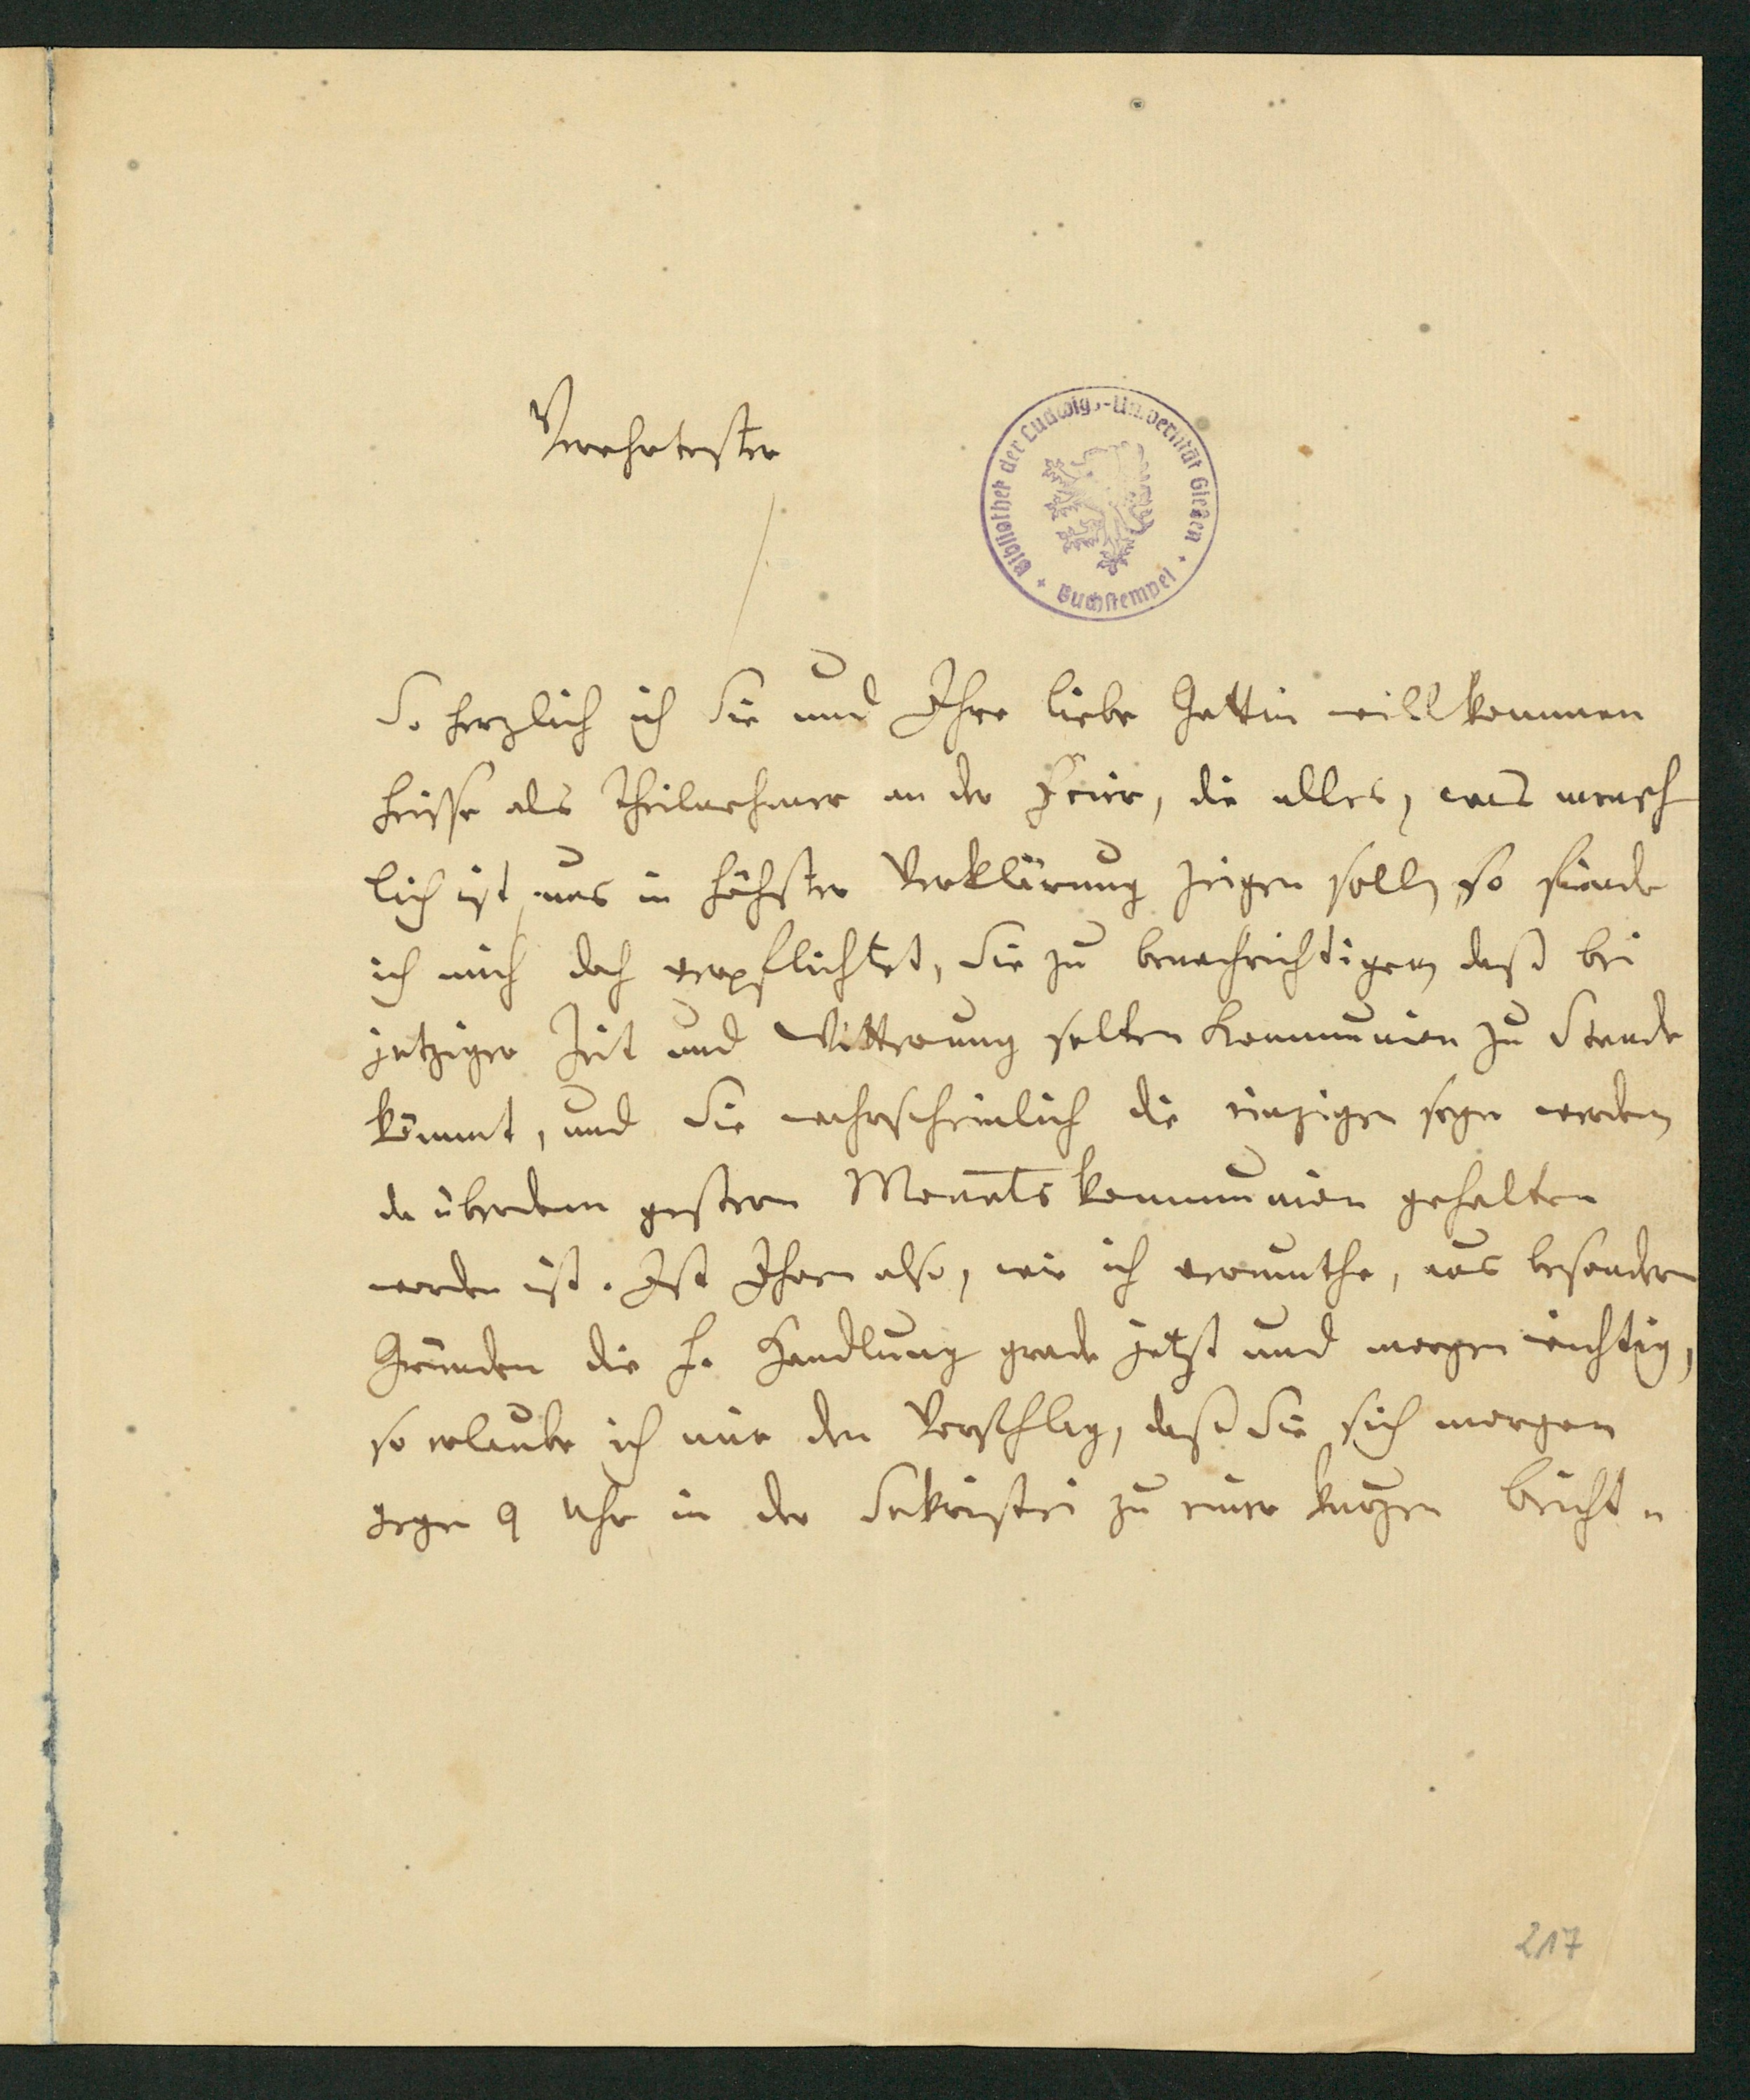 Verehrtester
Bibliothek der Ludwigs-Universität Gießen
+ Buchstempel +
So herzlich ich Sie und Ihre liebe Gattin willkommen
heisse als Theilnehmer an der Feier, die alles, was mensch
lich ist, uns in höchster Verklärung zeigen soll, so finde
ich mich doch verpflichtet, Sie zu benachrichtigen, daß bei
jetziger Zeit und Witterung selten Kommunion zu Stande
kömmt, und Sie wahrscheinlich die einzigen seyn werden,
da überdem gestern Monatskommunion gehalten
worden ist. Ist Ihnen also, wie ich vermuthe, aus besondern
Gründen die h. Handlung grade jetzt und morgen wichtig,
so erlaube ich mir den Vorschlag, daß Sie sich morgen
gegen 9 Uhr in der Sakristei zu einer kurzen Beicht "
217